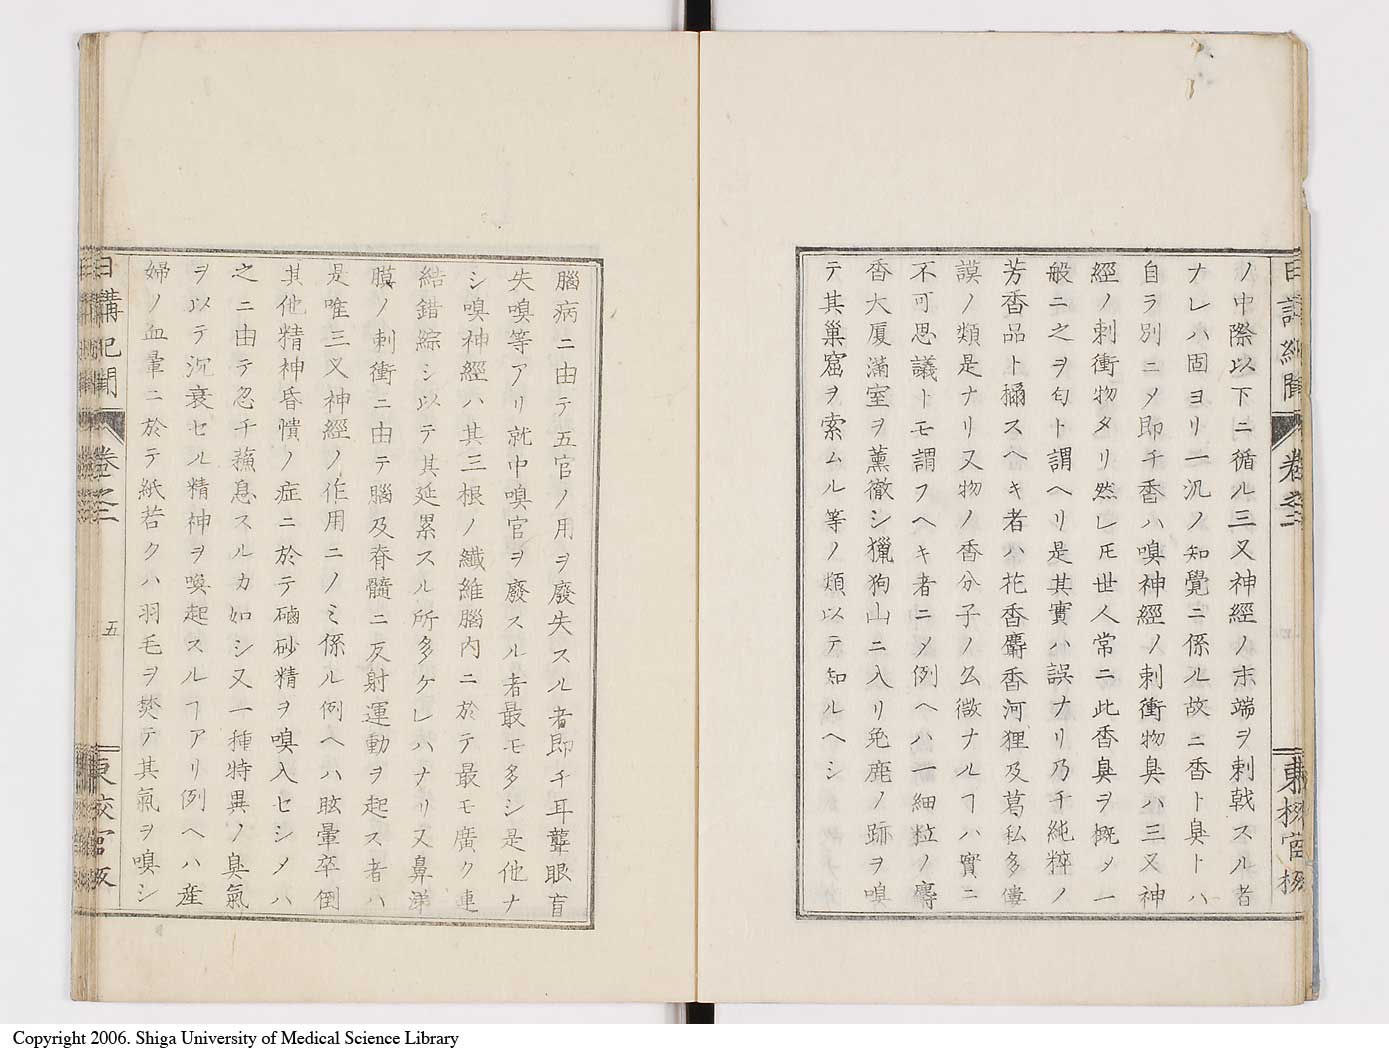 日講紀聞 卷之二 東校官板
ノ中際以下ニ循ル三叉神經ノ末端ヲ刺戟スル者
ナレハ固ヨリ一汎ノ知覺ニ係ル故ニ香ト臭トハ
自ラ別ニメ即チ香ハ嗅神經ノ刺衝物臭ハ三叉神
經ノ刺衝物タリ然レ𪜈世人常ニ此香臭ヲ概メ一
般ニ之ヲ匂ト謂ヘリ是其實ハ誤ナリ乃チ純粹ノ
芳香品ト稱スヘキ者ハ花香麝香河狸及葛私多僂
謨ノ類是ナリ又物ノ香分子ノ幺微ナルヿハ實ニ
不可思議トモ謂フヘキ者ニメ例ヘハ一細粒ノ麝
香大厦滿室ヲ薰徹シ獵狗山ニ入リ兔鹿ノ跡ヲ嗅
テ其巢窟ヲ索ムル等ノ類以テ知ルヘシ
腦病ニ由テ五官ノ用ヲ廢失スル者即チ耳聾眼盲
失嗅等アリ就中嗅官ヲ廢スル者最モ多シ是他ナ
シ嗅神經ハ其三根ノ纖維腦内ニ於テ最モ廣ク連
結錯綜シ以テ其延累スル所多ケレハナリ又鼻涕
膜ノ刺衝ニ由テ腦及脊髓ニ反射運動ヲ起ス者ハ
是唯三叉神經ノ作用ニノミ係ル例ヘハ眩暈卒倒
其他精神昏憒ノ症ニ於テ磠砂精ヲ嗅入セシメハ
之ニ由テ忽チ蘓息スルカ如シ又一種特異ノ臭氣
ヲ以テ沉衰セル精神ヲ喚起スルヿアリ例ヘハ産
婦ノ血暈ニ於テ紙若クハ羽毛ヲ焚テ其氣ヲ嗅シ
日講紀聞 卷之二 五 東校官板
Copyright 2006. Shiga University of Medical Science Library